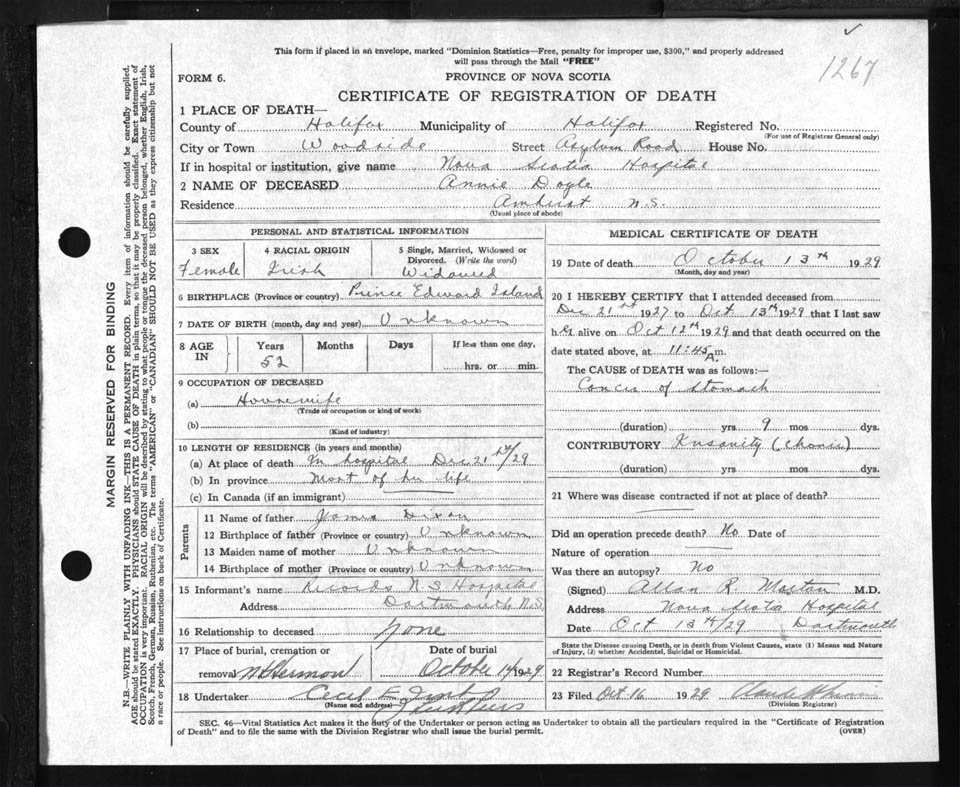 This form if placed in an envelope, marked "Dominion Statistics—Free, penalty for improper use, $300," and properly addressed
will pass through the Mail "FREE"
1267
FORM 6.
PROVINCE OF NOVA SCOTIA
CERTIFICATE OF REGISTRATION OF DEATH
1 PLACE OF DEATH—
County of Halifax Municipality of Halifax Registered No.
(For use of Registrar General only)
City or Town Woodside Street Asylum Road House No.
If in hospital or institution, give name Nova Scotia Hospital
2 NAME OF DECEASED Annie Doyle
Residence Amherst N.S.
(Usual place of abode)
PERSONAL AND STATISTICAL INFORMATION
3 SEX 4 RACIAL ORIGIN 5 Single, Married, Widowed or
Divorced. (Write the word)
Female Irish Widowed
6 BIRTHPLACE (Province or country) Prince Edward Island
7 DATE OF BIRTH (month, day and year) Unknown
8 AGE IN Years Months Days If less than one day,
52 hrs. or min.
9 OCCUPATION OF DECEASED
(a) Housewife
(Trade or occupation or kind of work)
(b)
(Kind of industry)
10 LENGTH OF RESIDENCE (in years and months)
(a) At place of death In hospital Dec 21st/29
(b) In province Most of her life
(c) In Canada (if an immigrant)
Parents
11 Name of father James Dixon
12 Birthplace of father (Province or country) Unknown
13 Maiden name of mother Unknown
14 Birthplace of mother (Province or country) Unknown
15 Informant's name Records N.S. Hospital
Address Dartmouth N.S.
16 Relationship to deceased None
17 Place of burial, cremation or Date of burial
removal Mt Hermon October 14 1929
18 Undertaker Cecil E.
(Name and address)
MEDICAL CERTIFICATE OF DEATH
19 Date of death October 13th 1929
(Month, day and year)
20 I HEREBY CERTIFY that I attended deceased from
Dec 21st 1927 to Oct 13th 1929 that I last saw
her alive on Oct 12th 1929 and that death occurred on
date stated above, at 11:45 A.m.
The CAUSE of DEATH was as follows:—
Cancer of Stomach
(duration) yrs 9 mos dys.
CONTRIBUTORY Insanity (Chronic)
(duration) yrs. mos. dys.
21 Where was disease contracted if not at place of death?
Did an operation precede death? No Date of
Nature of operation
Was there an autopsy? No
(Signed) Allan R. Morton M.D.
Address Nova Scotia Hospital
Date Oct 13th/29 Dartmouth
State the Disease causing Death, or in death from Violent Causes, state (1) Means and Nature
of Injury, (2) whether Accidental, Suicidal or Homicidal.
22 Registrar's Record Number
23 Filed Oct 16 1929
(Division Registrar)
SEC. 46—Vital Statistics Act makes it the duty of the Undertaker or person acting as Undertaker to obtain all the particulars required in the "Certificate of Registration
of Death" and to file the same with the Division Registrar who shall issue the burial permit.
(OVER)
MARGIN RESERVED FOR BINDING
N.B.—WRITE PLAINLY WITH UNFADING INK—THIS IS A PERMANENT RECORD. Every item of information should be carefully supplied.
AGE should be stated EXACTLY. PHYSICIANS should STATE CAUSE OF DEATH in plain terms, so that it may be properly classified. Exact statement of
OCCUPATION is very important. RACIAL ORIGIN will be described by stating to what people or tongue the deceased person belonged, whether English, Irish,
Scotch, French, German, Russian, Ruthenian, etc. The terms "AMERICAN" or "CANADIAN" SHOULD NOT BE USED as they express citizenship but not
a race or people. See instructions on back of Certificate.